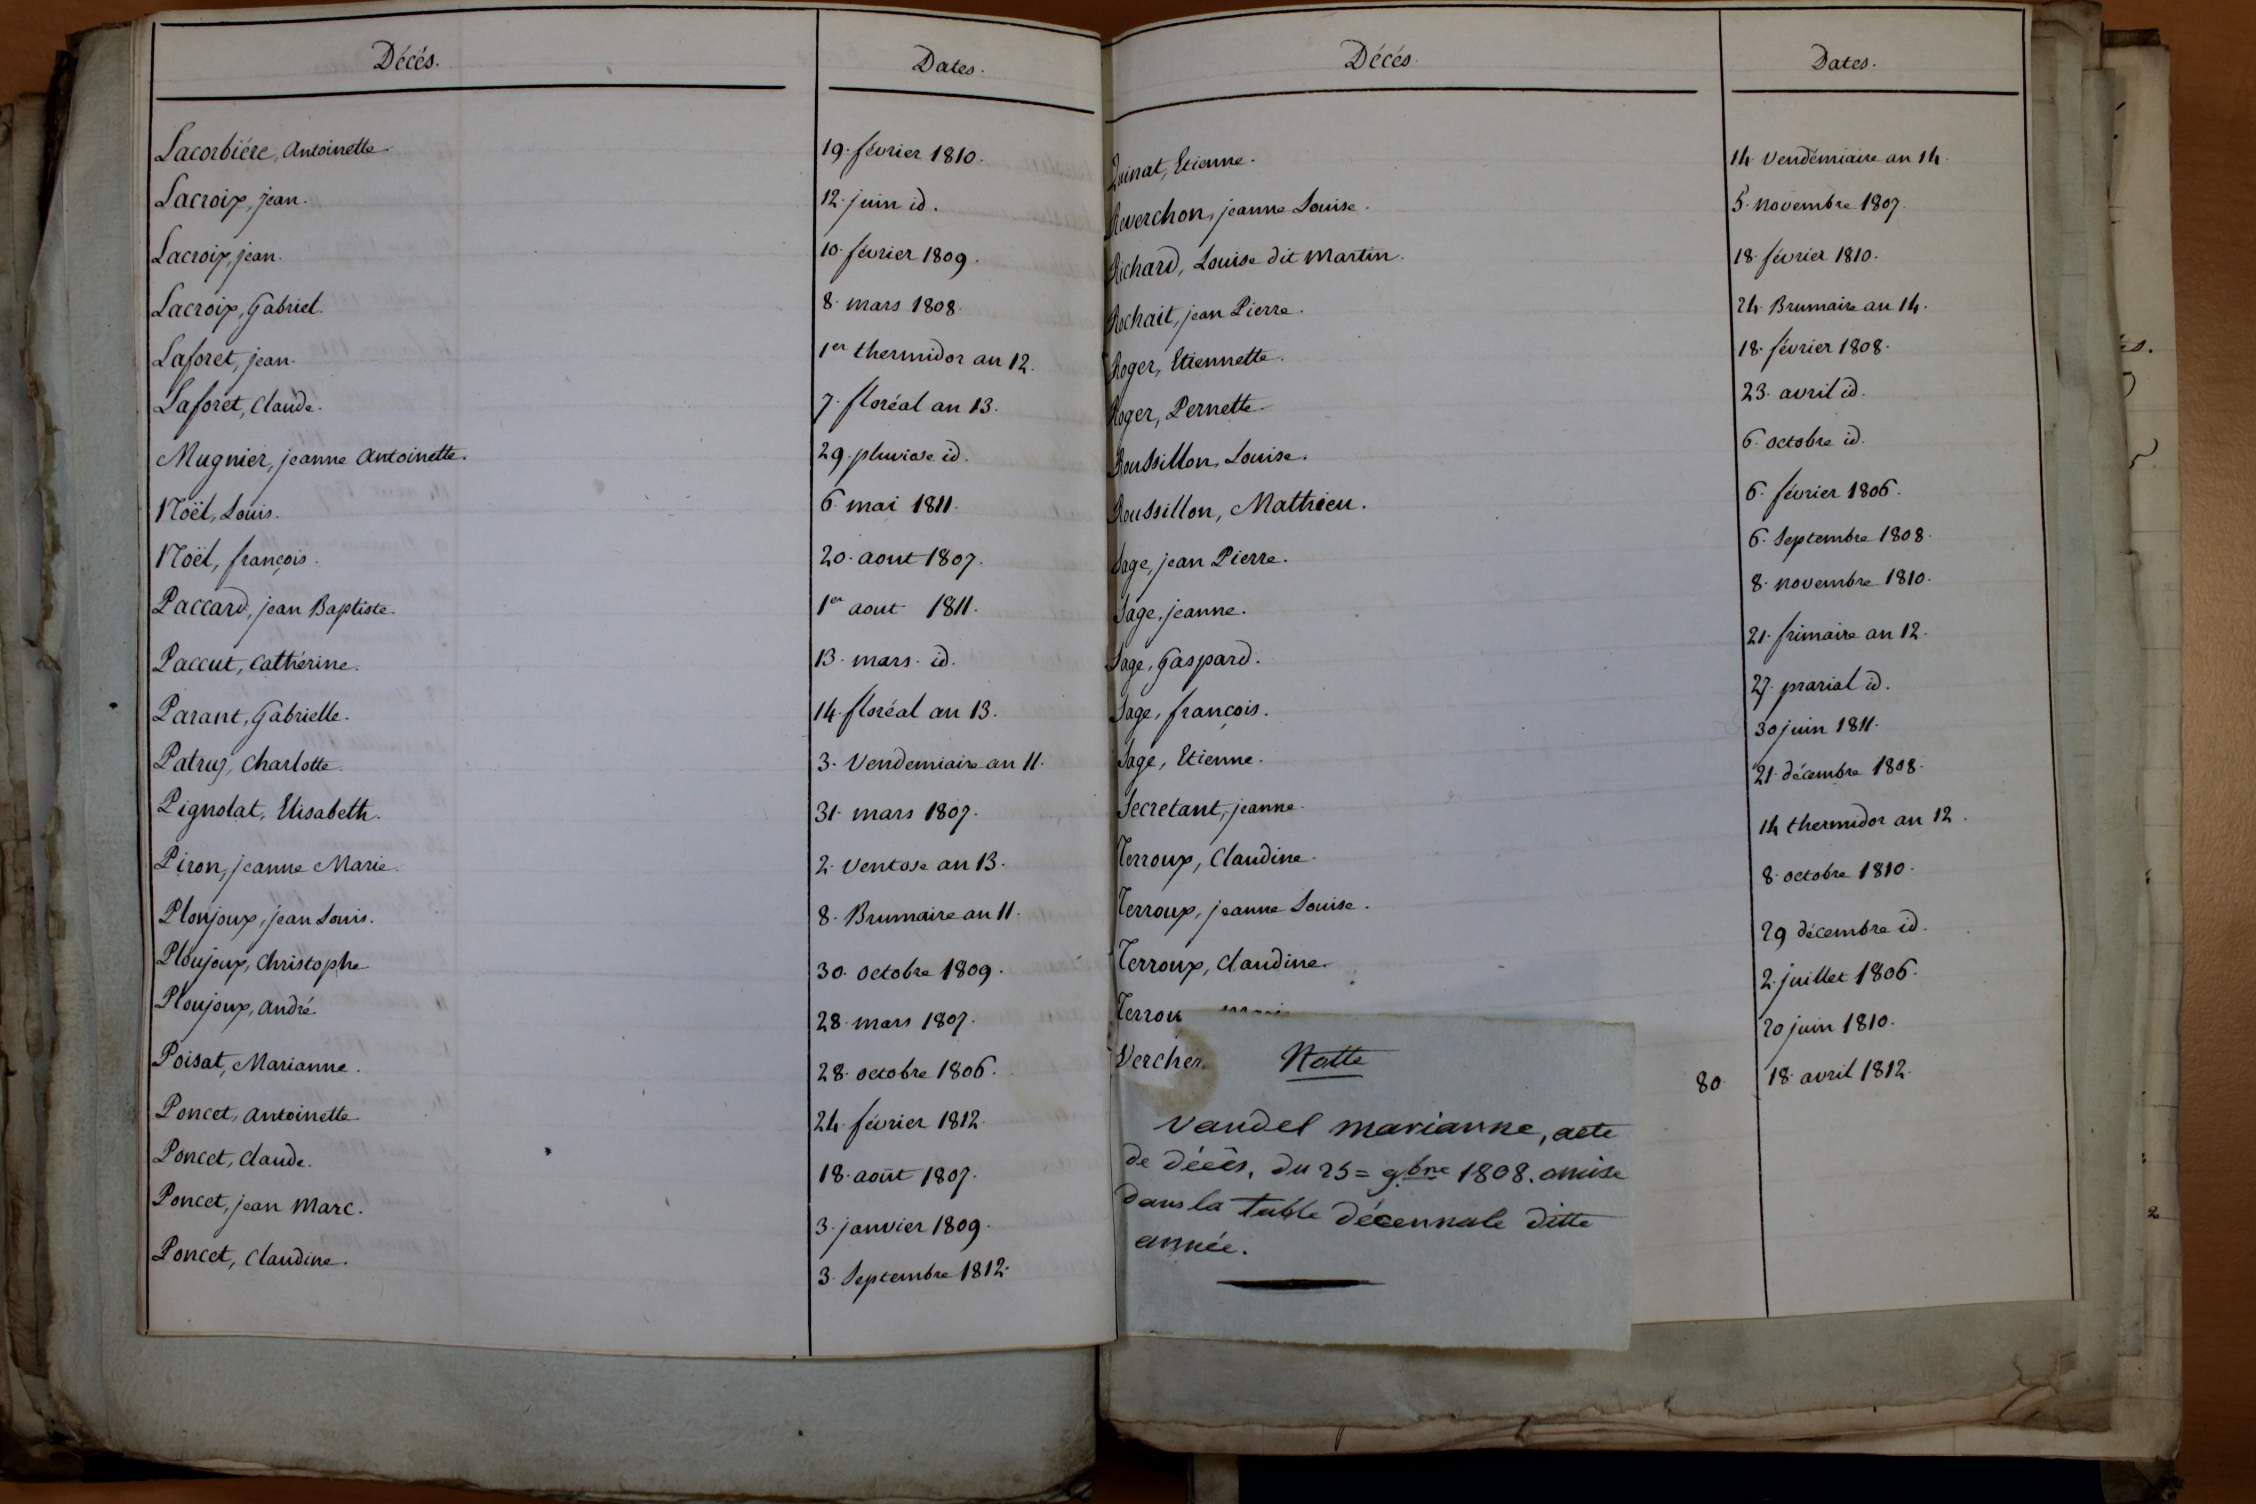 Décés. Dates.
Lacorbiére, Antoinette. 19. février 1810.
Lacroix, jean. 12. juin id.
Lacroix, jean. 10. février 1809.
Lacroix, Gabriel. 8. mars 1808.
Laforet, jean. 1er thermidor an 12.
Laforet, Claude. 7. floréal an 13.
Mugnier, jeanne Antoinette. 29. pluviose id.
Noël, Louis. 6 mai 1811.
Noël, françois. 20. aout 1807.
Paccard, jean Baptiste. 1er aout 1811.
Paccut, Cathérine. 13. mars. id.
Parant, Gabrielle. 14. floréal an 13.
Patruz, Charlotte. 3. Vendemiaire an 11.
Pignolat, Elisabeth. 31. mars 1807.
Piron, jeanne Marie. 2. Ventose an 13.
Ploujoux, jean Louis. 8. Brumaire an 11.
Ploujoux, Christophe 30. octobre 1809.
Ploujoux, André. 28. mars 1807.
Poisat, Marianne. 28. octobre 1806.
Poncet, Antoinette 24. février 1812.
Poncet, Claude. 18. août 1807.
Poncet, jean Marc. 3. janvier 1809.
Poncet, Claudine. 3. Septembre 1812.
Décés. Dates.
Quinat, Etienne. 14. Vendémiaire an 14.
Reverchon, jeanne Louise. 5. novembre 1807.
Richard, Louise dit Martin. 18. février 1810.
Rochait, jean Pierre. 24. Brumaire an 14.
Roger, Etiennette. 18. février 1808.
Roger, Pernette 23. avril id.
Roussillon, Louise. 6. octobre id.
Roussillon, Mathieu. 6. février 1806.
Sage, jean Pierre. 6. Septembre 1808.
Sage, jeanne. 8. novembre 1810.
Sage, Gaspard. 21. frimaire an 12.
Sage, françois. 27. prarial id.
Sage, Etienne. 30 juin 1811.
Secretant, jeanne. 21. décembre 1808.
Terroux, Claudine. 14 thermidor an 12.
Terroux, jeanne Louise. 8. octobre 1810.
Terroux, Claudine. 29 décembre id.
Terrou 2. juillet 1806.
Vercher. 20 juin 1810.
80. 18. avril 1812.
Notte
Vandel marianne, acte
de décès, du 25= 9bre 1808. omise
dans la table décennale ditte
année.